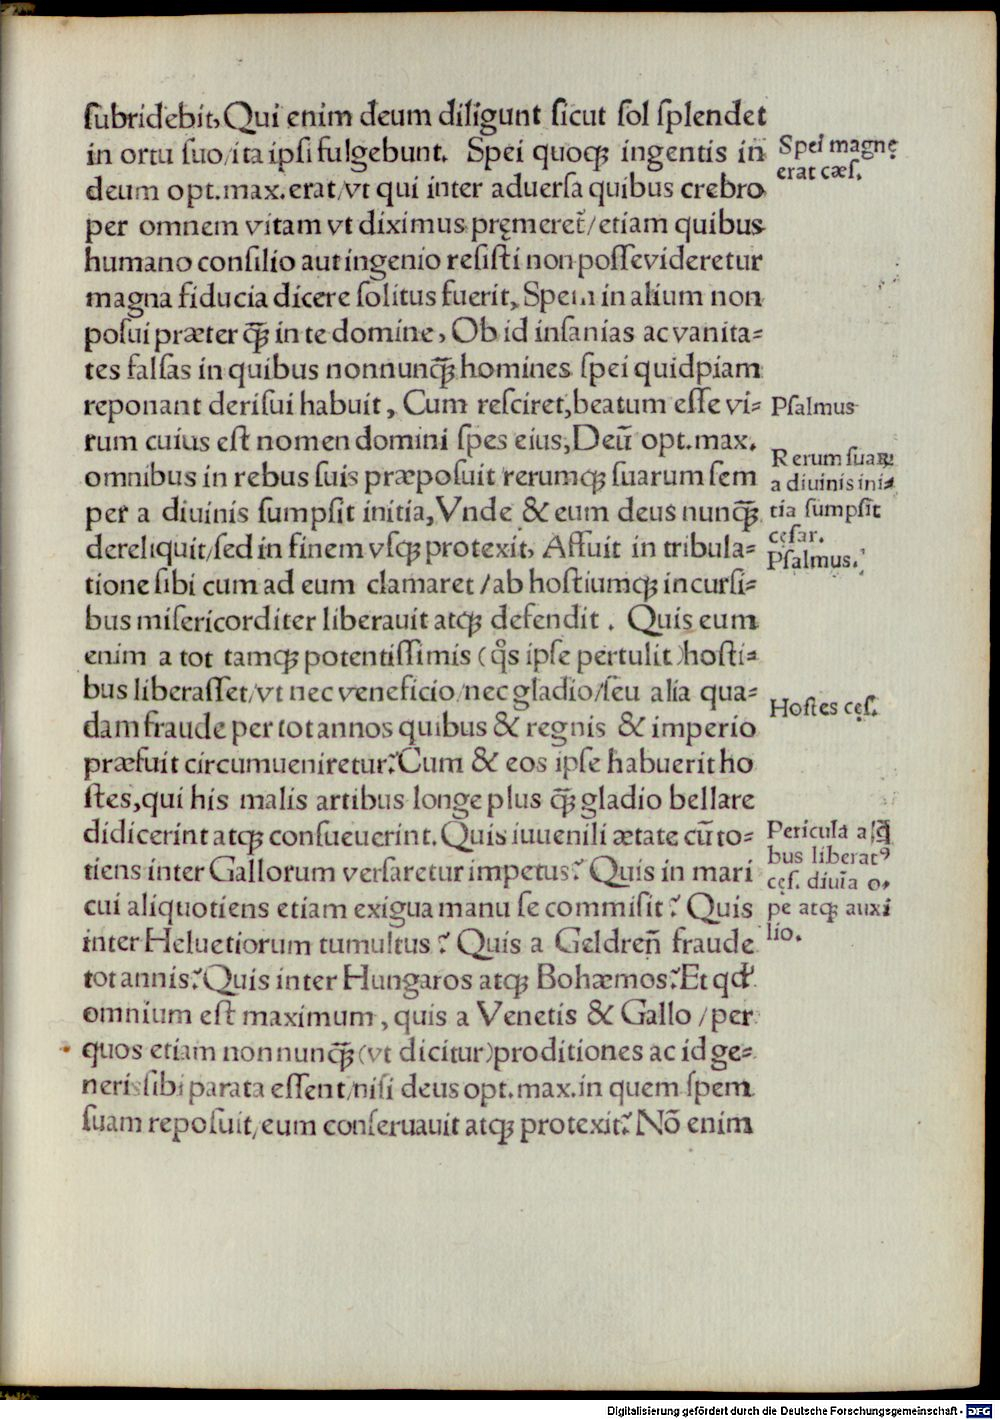 ſubridebit, Qui enim deum diligunt ſicut ſol ſplendet
in ortu ſuo/ita ipſi fulgebunt. Spei quoqꝫ ingentis in
deum opt.max.erat/vt qui inter aduerſa quibus crebro
per omnem vitam vt diximus pręmeret̃/etiam quibus
humano conſilio aut ingenio reſiſti non poſſe videretur
magna fiducia dicere ſolitus fuerit, Spem in alium non
poſui præter q̃ꝫ in te domine, Ob id inſanias ac vanita⸗
tes falſas in quibus nonnunq̃ꝫ homines ſpei quidpiam
reponant deriſui habuit, Cum reſciret, beatum eſſe vi⸗
rum cuius eſt nomen domini ſpes eius, Deū opt.max.
omnibus in rebus ſuis præpoſuit rerumqꝫ ſuarum ſem
per a diuinis ſumpſit initia, Vnde & eum deus nunq̃ꝫ
dereliquit/ſed in finem vſqꝫ protexit, Affuit in tribula⸗
tione ſibi cum ad eum clamaret/ab hoſtiumqꝫ incurſi⸗
bus miſericorditer liberauit atqꝫ defendit. Quis eum
enim a tot tamqꝫ potentiſſimis (q̊s ipſe pertulit) hoſti⸗
bus liberaſſet/vt nec veneficio/nec gladio/ſeu alia qua⸗
dam fraude per tot annos quibus & regnis & imperio
præfuit circumueniretur? Cum & eos ipſe habuerit ho
ſtes, qui his malis artibus longe plus q̃ꝫ gladio bellare
didicerint atqꝫ conſueuerint. Quis iuuenili ætate cū to⸗
tiens inter Gallorum verſaretur impetus? Quis in mari
cui aliquotiens etiam exigua manu ſe commiſit? Quis
inter Heluetiorum tumultus? Quis a Geldreñ fraude
tot annis? Quis inter Hungaros atqꝫ Bohæmos? Et qd'
omnium eſt maximum, quis a Venetis & Gallo/per
quos etiam nonnunq̃ꝫ (vt dicitur) proditiones ac id ge⸗
neris ſibi parata eſſent/niſi deus opt.max.in quem ſpem
ſuam repoſuit/eum conſeruauit atqꝫ protexit? Nō enim
Spei magnę
erat cæſ.
Pſalmus
Rerum ſuaꝝ
a diuinis ini⸗
tia ſumpſit
cęſar.
Pſalmus.
Hoſtes cęſ.
Pericula a q̃
bus liberatꝰ
cęſ. diuīa o⸗
pe atqꝫ auxi
lio.
Digitalisierung gefördert durch die Deutsche Forschungsgemeinschaft - DFG